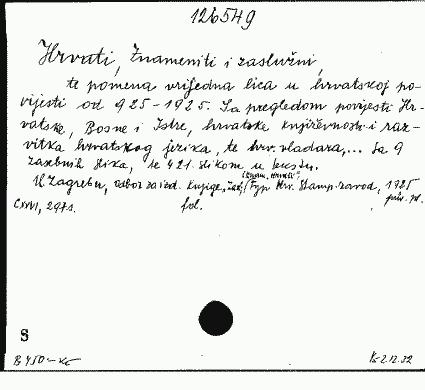 126549
Hrvati, Znameniti i zaslužni,
te pomena vrijedna lica u hrvatskoj po-
vijesti od 925-1925. Sa pregledom povijesti Hr-
vatske, Bosne i Istre, hrvatske književnosti i raz-
vitka hrvatskog jezika, te hrv. vladara,... Sa 9
zasebnih slika, te 421 slikom u tekstu.
U Zagrebu, odbor za izd. knjige, "Zasl. i znam. Hrvati", (Typ Hrv. Štamp. zavod, 1925
priv. pl.
CXVI, 297 s. fol.
S
B 450-
12.32